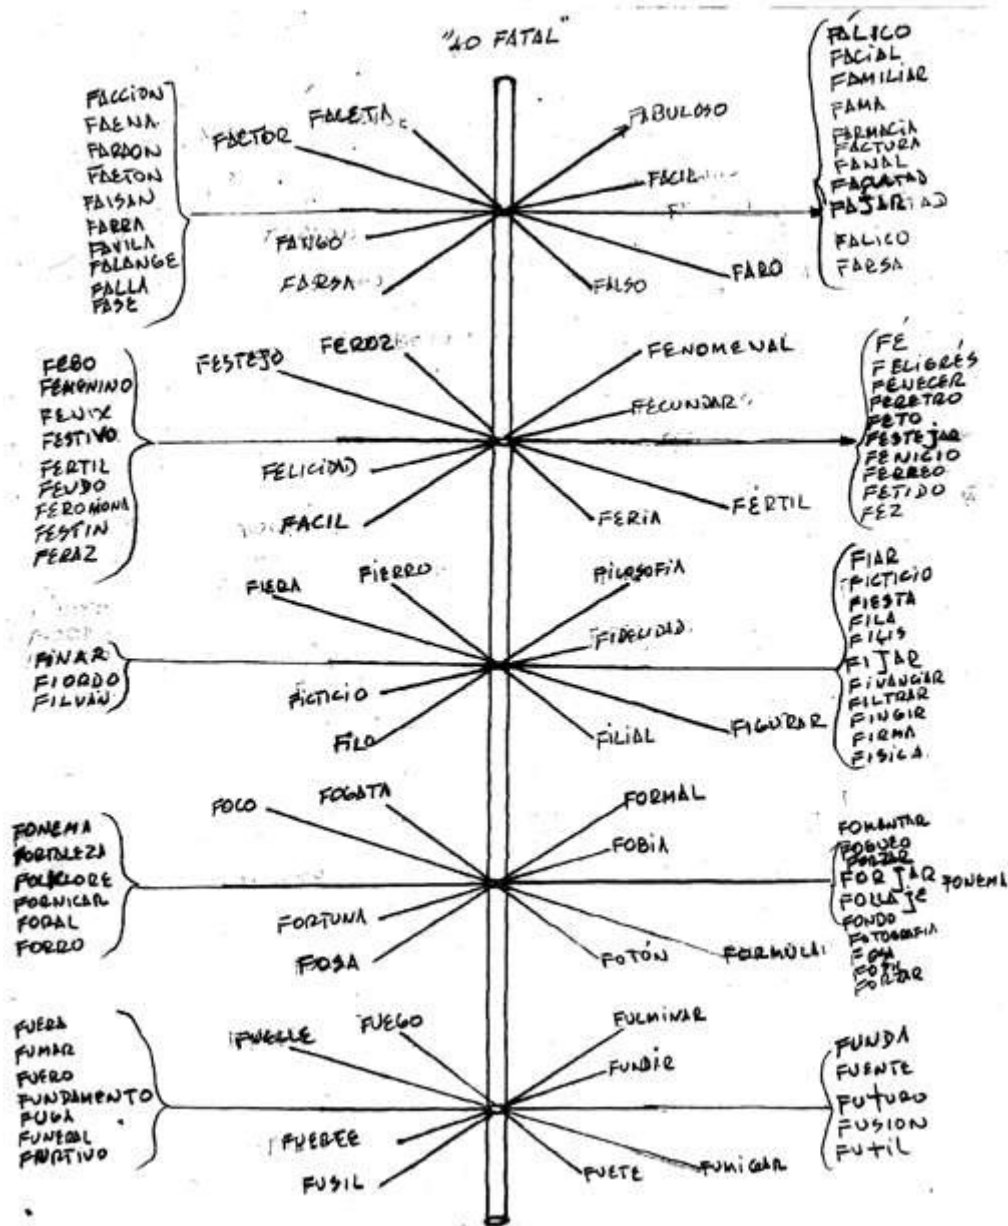 "40 FATAL"
FACCION
FAENA
FARAON
FAETON
FAISAN
FARRA
FAVILA
FALANGE
FALLA
FASE
FACTOR
FACETA
FANGO
FARSA
FABULOSO
FACIL
FARO
FALSO
FÁLICO
FACIAL
FAMILIAR
FAMA
FARMACIA
FACTURA
FANAL
FAJAR
FALICO
FARSA
FEBO
FEMENINO
FENIX
FESTIVO
FERTIL
FEUDO
FEROMONA
FESTIN
FERAZ
FESTEJO
FEROZ
FELICIDAD
FACIL
FENOMENAL
FECUNDAR
FÉRTIL
FERIA
FÉ
FELIGRÉS
FENECER
FERETRO
FETO
FESTEJAR
FENICIO
FERREO
FETIDO
FEZ
FINAR
FIORDO
FILVAN
FIERA
FIERRO
FICTICIO
FILO
FILOSOFIA
FIDELIDAD
FIGURAR
FILIAL
FIAR
FICTICIO
FIESTA
FILA
FILIS
FIJAR
FINANCIAR
FILTRAR
FINGIR
FIRMA
FISICA
FONEMA
FORTALEZA
FOLKLORE
FORNICAR
FORAL
FORRO
FOCO
FOGATA
FORTUNA
FOSA
FORMAL
FOBIA
FORMULA
FOTÓN
FOMENTAR
FOGUEO
FORZAR
FORJAR FONEMA
FOLLAJE
FONDO
FOTOGRAFIA
FOSA
FORZAR
FUERA
FUMAR
FUERO
FUNDAMENTO
FUGA
FUNERAL
FURTIVO
FUELLE
FUEGO
FUSIL
FULMINAR
FUNDIR
FUMIGAR
FUETE
FUNDA
FUENTE
FUTURO
FUSION
FUTIL